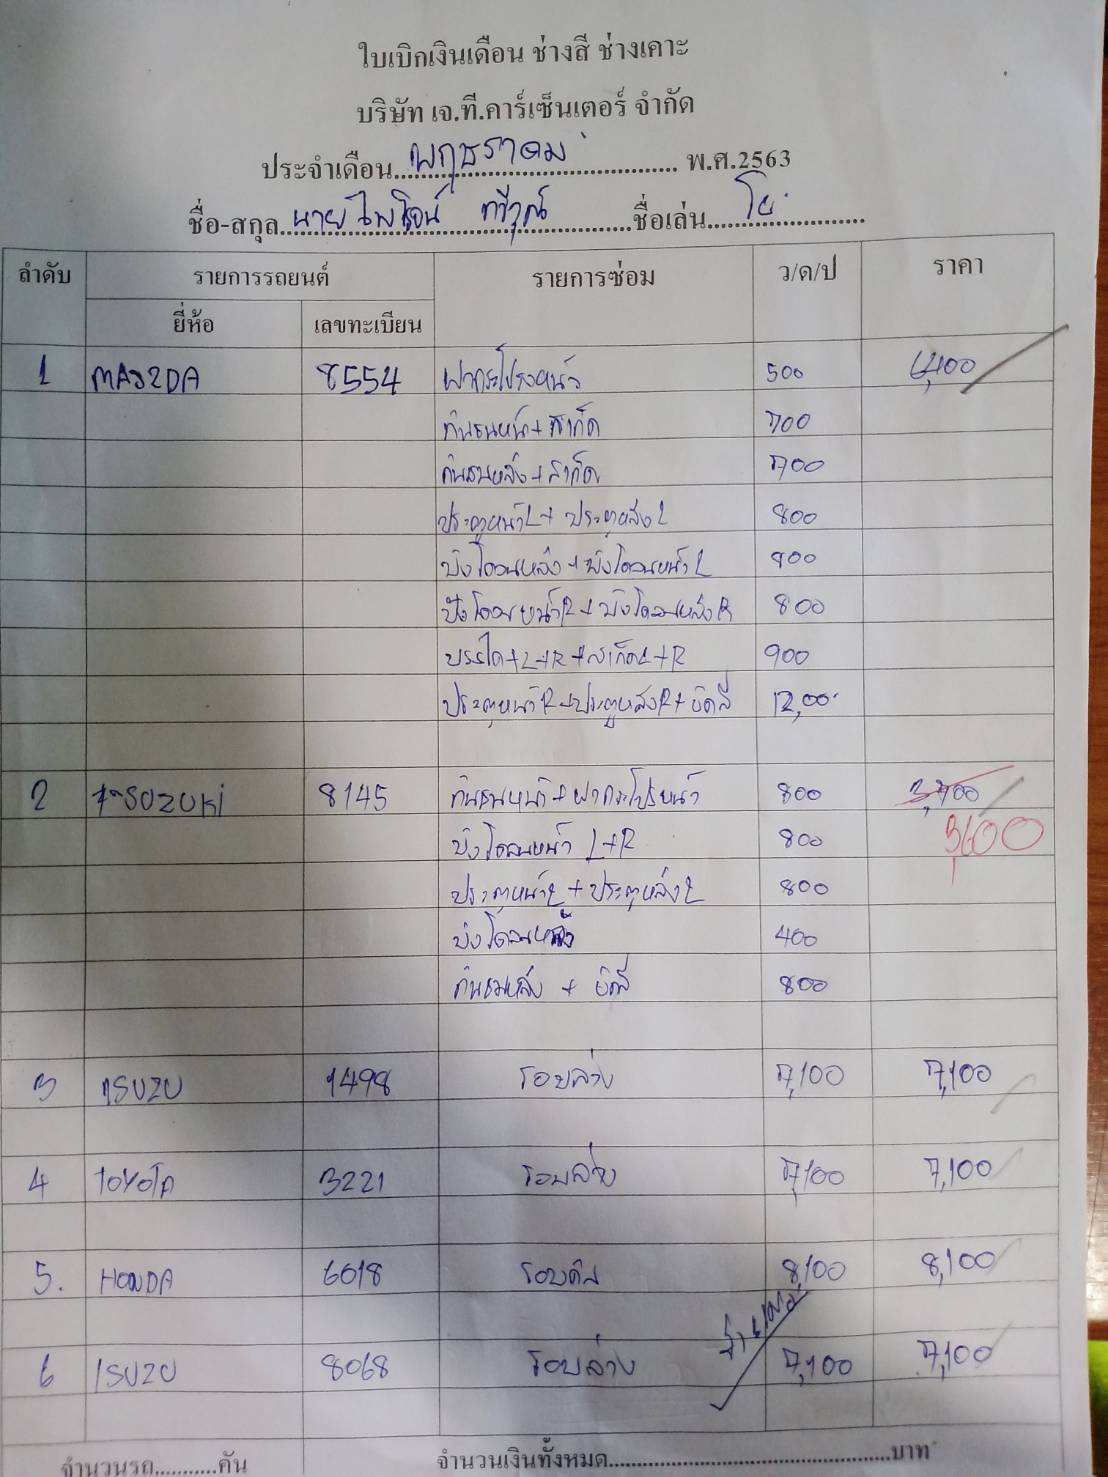 ใบเบิกเงินเดือน ช่างสี ช่างเคาะ
บริษัท เจ.ที.คาร์เซ็นเตอร์ จำกัด
ประจำเดือน พฤษราคม พ.ศ.2563
ชื่อ-สกุล นายไพโรจน์ ทวีวุฒิ ชื่อเล่น โย
ลำดับ รายการรถยนต์ รายการซ่อม ว/ด/ป ราคา
ยี่ห้อ เลขทะเบียน
1 MAZDA 8554 ฝากระโปรงหน้า 500 6,400
กันชนหน้า + สเก็ต 700
กันชนหลัง + สเก็ต 700
ประตูหน้า L + ประตูหลัง L 800
บังโคลนหลัง + บังโคลนหน้า L 800
บังโคลนหน้า R + บังโคลนหลัง R 800
บรรได + L + R + สเก็ต L + R 900
ประตูหน้า R + ประตูหลัง R + ขัดสี 12,00
2 SUZUKi 8145 กันชนหน้า + ฝากระโปรงหน้า 800 3,700
บังโคลนหน้า L + R 800 3,600
ประตูหน้า L + ประตูหลัง L 800
บังโคลนหลัง 400
กันชนหลัง + ขัดสี 800
3 ISUZU 1498 รอบล่าง 7,100 7,100
4 TOYOTA 3221 รอบล่าง 7,100 7,100
5. HONDA 6018 รอบคัน 8,100 8,100
6 ISUZU 8068 รอบล่าง 7,100 7,100
จำนวนรถ...........คัน จำนวนเงินทั้งหมด..........บาท